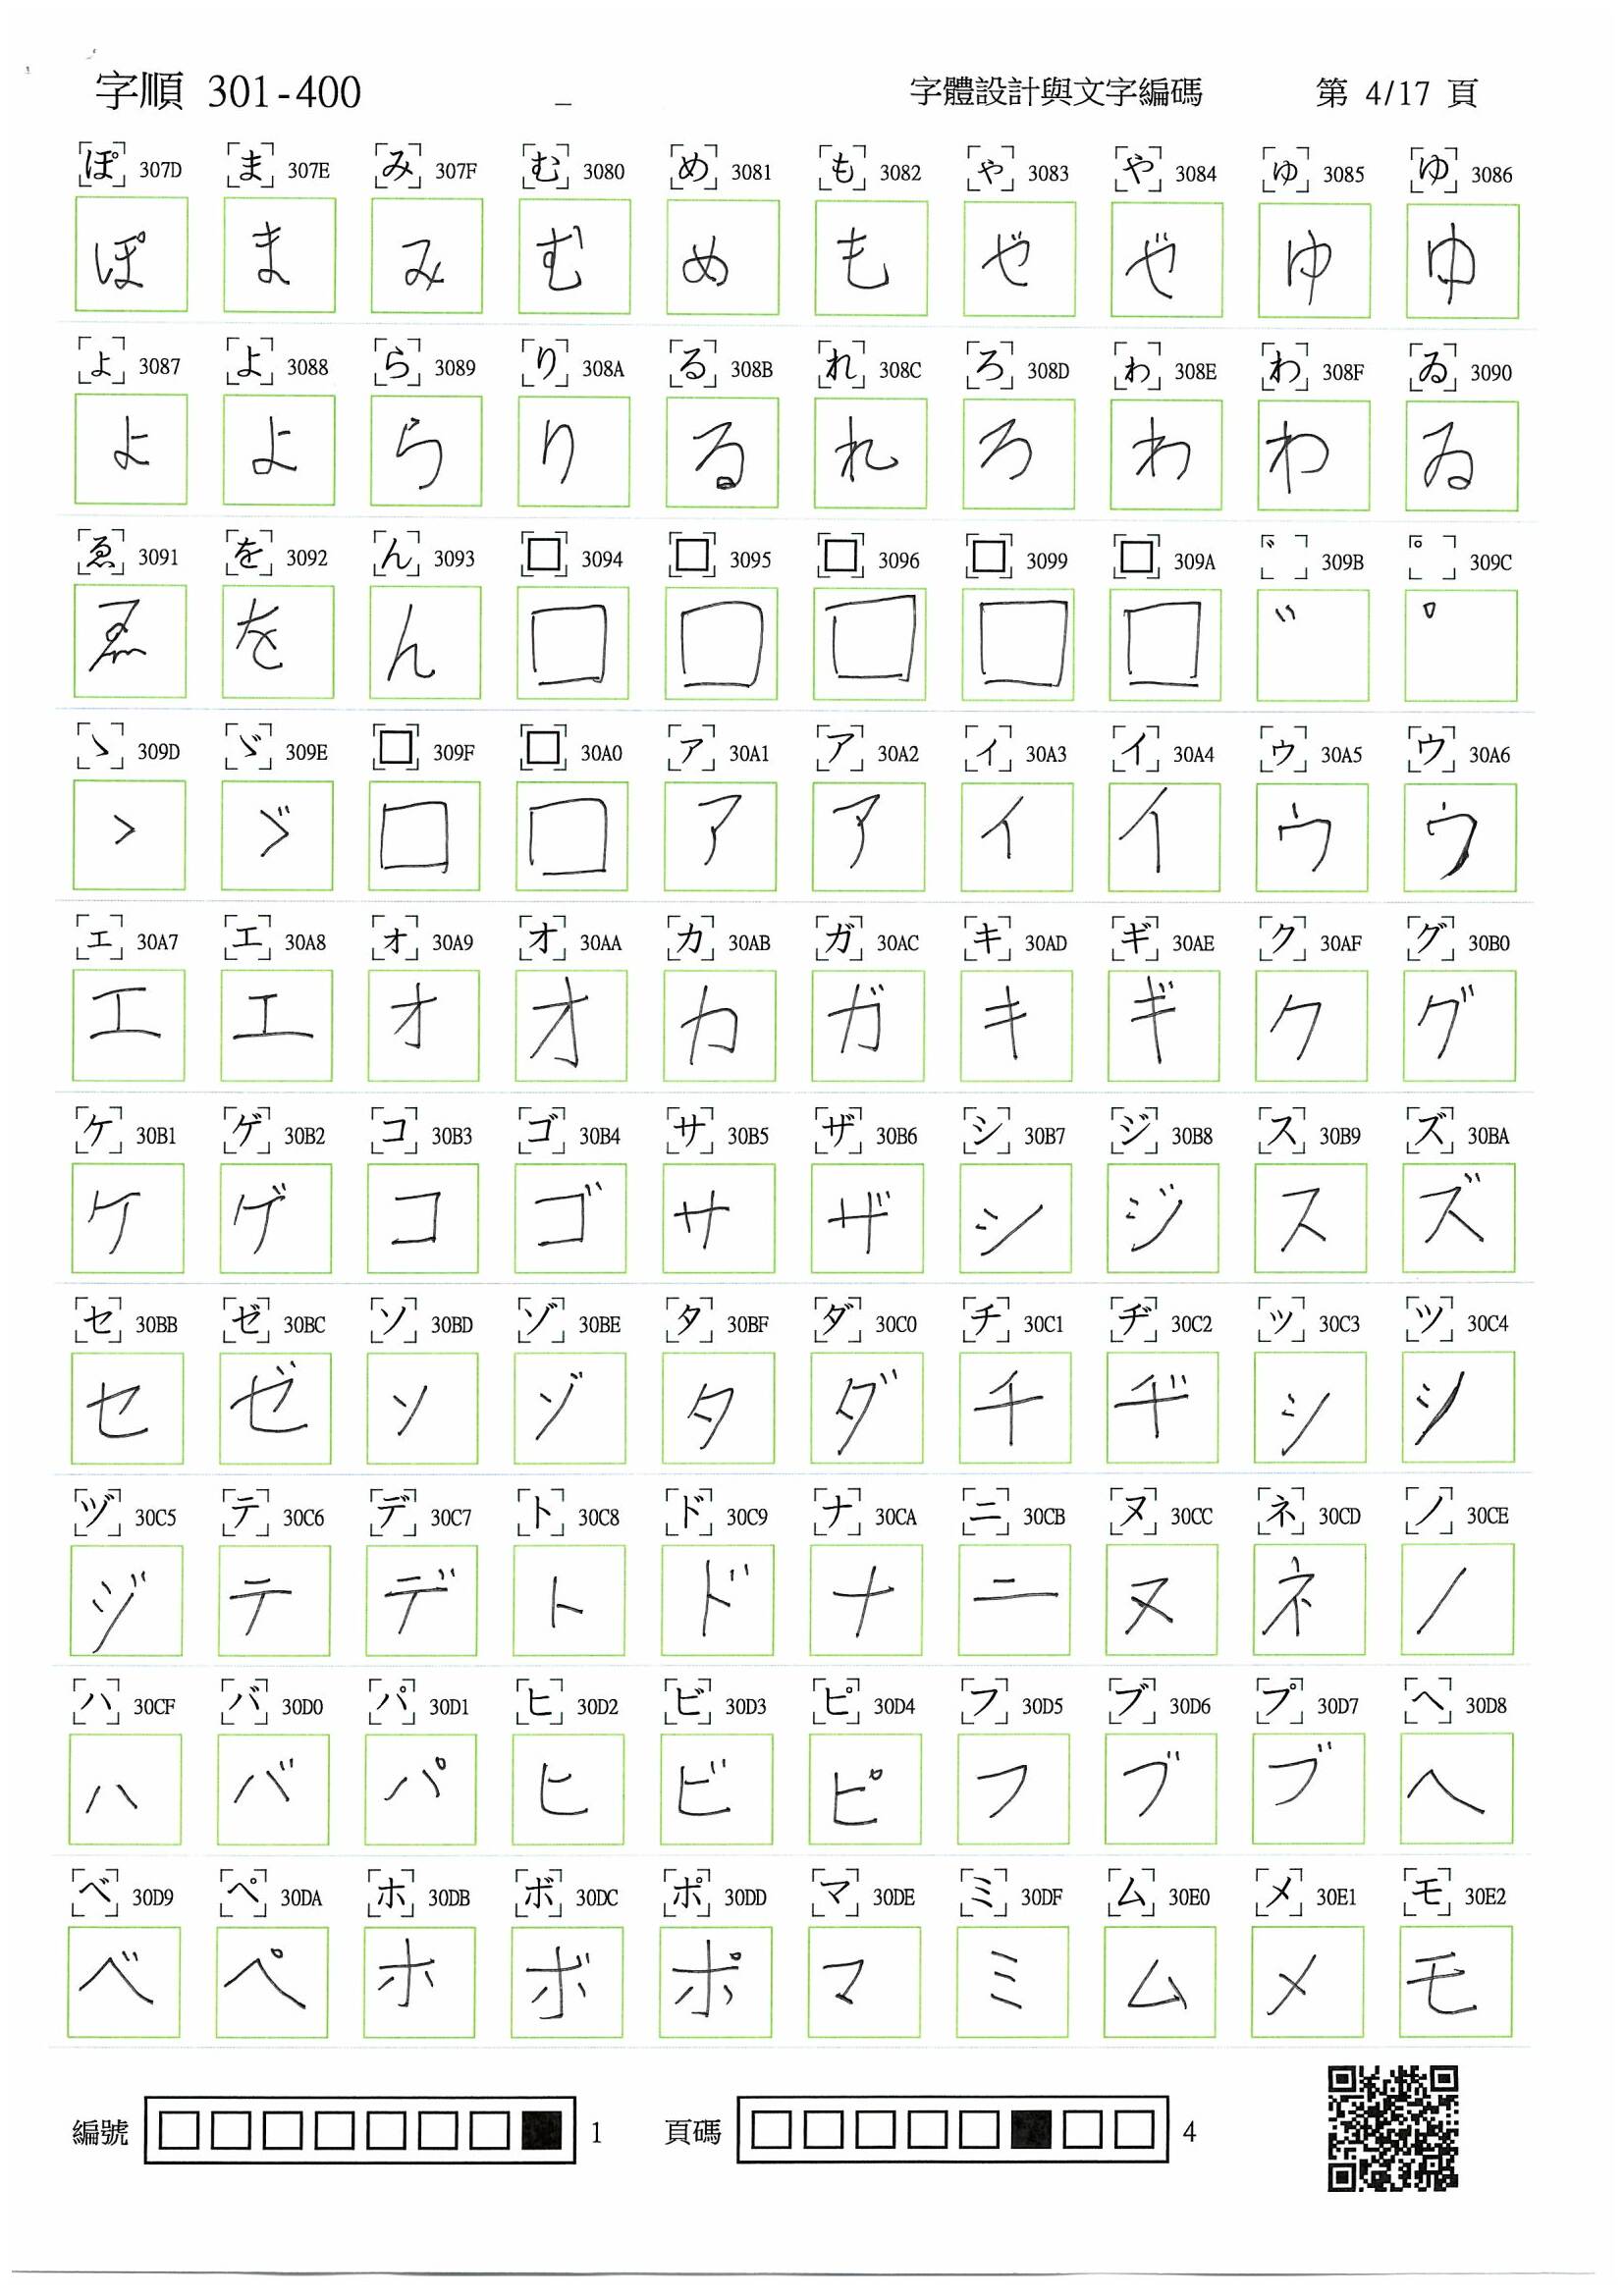 字順 301-400 字體設計與文字編碼 第 4/17 頁
ぽ 307D ま 307E み 307F む 3080 め 3081 も 3082 ゃ 3083 や 3084 ゅ 3085 ゆ 3086
ぽ ま み む め も や や ゆ ゆ
ょ 3087 よ 3088 ら 3089 り 308A る 308B れ 308C ろ 308D ゎ 308E わ 308F ゐ 3090
よ よ ら り る れ ろ わ わ ゐ
ゑ 3091 を 3092 ん 3093 □ 3094 □ 3095 □ 3096 □ 3099 □ 309A ゛ 309B ゜ 309C
ゑ を ん □ □ □ □ □ ゛ ゜
ゝ 309D ゞ 309E □ 309F □ 30A0 ァ 30A1 ア 30A2 ィ 30A3 イ 30A4 ゥ 30A5 ウ 30A6
ゝ ゞ □ □ ア ア イ イ ウ ウ
ェ 30A7 エ 30A8 ォ 30A9 オ 30AA カ 30AB ガ 30AC キ 30AD ギ 30AE ク 30AF グ 30B0
エ エ オ オ カ ガ キ ギ ク グ
ケ 30B1 ゲ 30B2 コ 30B3 ゴ 30B4 サ 30B5 ザ 30B6 シ 30B7 ジ 30B8 ス 30B9 ズ 30BA
ケ ゲ コ ゴ サ ザ シ ジ ス ズ
セ 30BB ゼ 30BC ソ 30BD ゾ 30BE タ 30BF ダ 30C0 チ 30C1 ヂ 30C2 ッ 30C3 ツ 30C4
セ ゼ ソ ゾ タ ダ チ ヂ ツ ツ
ヅ 30C5 テ 30C6 デ 30C7 ト 30C8 ド 30C9 ナ 30CA ニ 30CB ヌ 30CC ネ 30CD ノ 30CE
ヅ テ デ ト ド ナ ニ ヌ ネ ノ
ハ 30CF バ 30D0 パ 30D1 ヒ 30D2 ビ 30D3 ピ 30D4 フ 30D5 ブ 30D6 プ 30D7 ヘ 30D8
ハ バ パ ヒ ビ ピ フ ブ ブ ヘ
ベ 30D9 ペ 30DA ホ 30DB ボ 30DC ポ 30DD マ 30DE ミ 30DF ム 30E0 メ 30E1 モ 30E2
ベ ペ ホ ボ ポ マ ミ ム メ モ
編號 1 頁碼 4